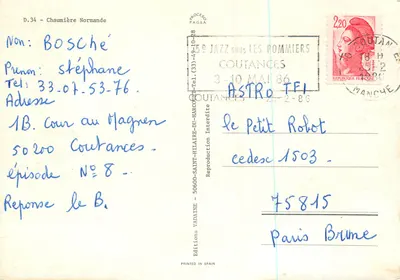 D.34 - Chaumière Normande
Nom: BOSChé
Prenom: Stéphane
Tel: 33.07.53-76.
Adresse
1B. Cour au Magnen
50200 Coutances -
épisode Nº8 -
Reponse le B.
Editions YANAINE - 50600-SAINT-HILAIRE-DU-HARCOUET-Tel.(33)49-10-28
Reproduction Interdite
PRINTED IN SPAIN
5e JAZZ sous LES POMMIERS
COUTANCES
3-10 MAI 86
2,20
MANCHE
ASTRO TF1
le Petit Robot
cedex 1503 -
75815
Paris Brune